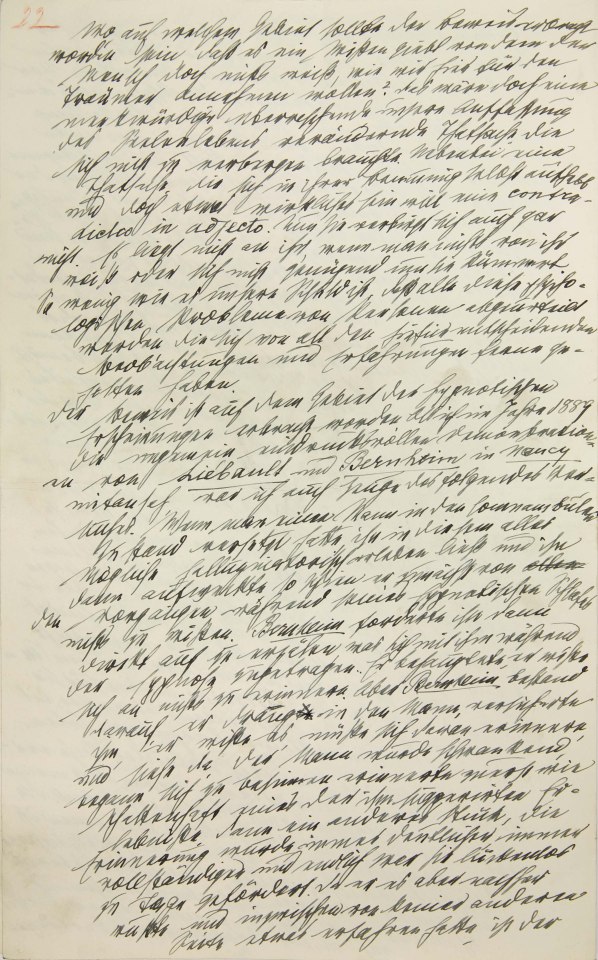 22
Wo auf welchem Gebiet sollte der Beweis erbracht
worden sein, daß es ein Wissen giebt von dem der
Mensch doch nichts weiß, wie wir hier für den
Träumer annehmen wollen? Das wäre doch eine
merkwürdige überraschende unsere Auffassung
des Seelenlebens verändernde Thatsache die
sich nicht zu verbergen brauchte. Nebenbei eine
Thatsache, die sich in ihrer Benennung selbst aufhebt
und doch etwas wirkliches sein will eine contra-
dictio in adjecto. Nun sie verbirgt sich auch gar
nicht. Es liegt nicht an ihr, wenn man nichts von ihr
weiß oder sich nicht genügend um sie kümmert
So wenig wie es unsere Schuld ist daß alle diese psycho-
logischen Probleme von Personen abgeurteilt
werden die sich von all den hiefür entscheidenden
Beobachtungen und Erfahrungen ferne ge-
halten haben.
Der Beweis ist auf dem Gebiet der hypnotischen
Erscheinungen erbracht worden Als ich im Jahre 1889
die ungemein eindrucksvollen Demonstration-
en von Liébault und Bernheim in Nancy
mitansah war ich auch Zeuge des folgenden Ver-
suches. Wenn man einen Mann in den somnambulen
Zustand versetzt hatte ihn in diesem alles
Mögliche halluzinatorisch erleben ließ und ihn
dann aufweckte so schien er zunächst von
den Vorgängen während seines hypnotischen Schlafes
nichts zu wissen. Bernheim forderte ihn dann
direkt auf zu erzählen was sich mit ihm während
der Hypnose zugetragen. Er behauptete er wisse
sich an nichts zu erinnern Aber Bernheim bestand
darauf, er drang in den Mann, versicherte
ihm, er wisse es, müsse sich daran erinnern,
und siehe da, der Mann wurde schwankend,
begann sich zu besinnen erinnerte zuerst wie
schattenhaft eines der ihm suggerirten Er-
lebnisse dann ein anderes Stück, die
Erinnerung wurde immer deutlicher immer
vollständiger und endlich war sie lückenlos
zu Tage gefördert. Da er es aber nachher
wußte und inzwischen von keiner anderen
Seite etwas erfahren hatte, ist der